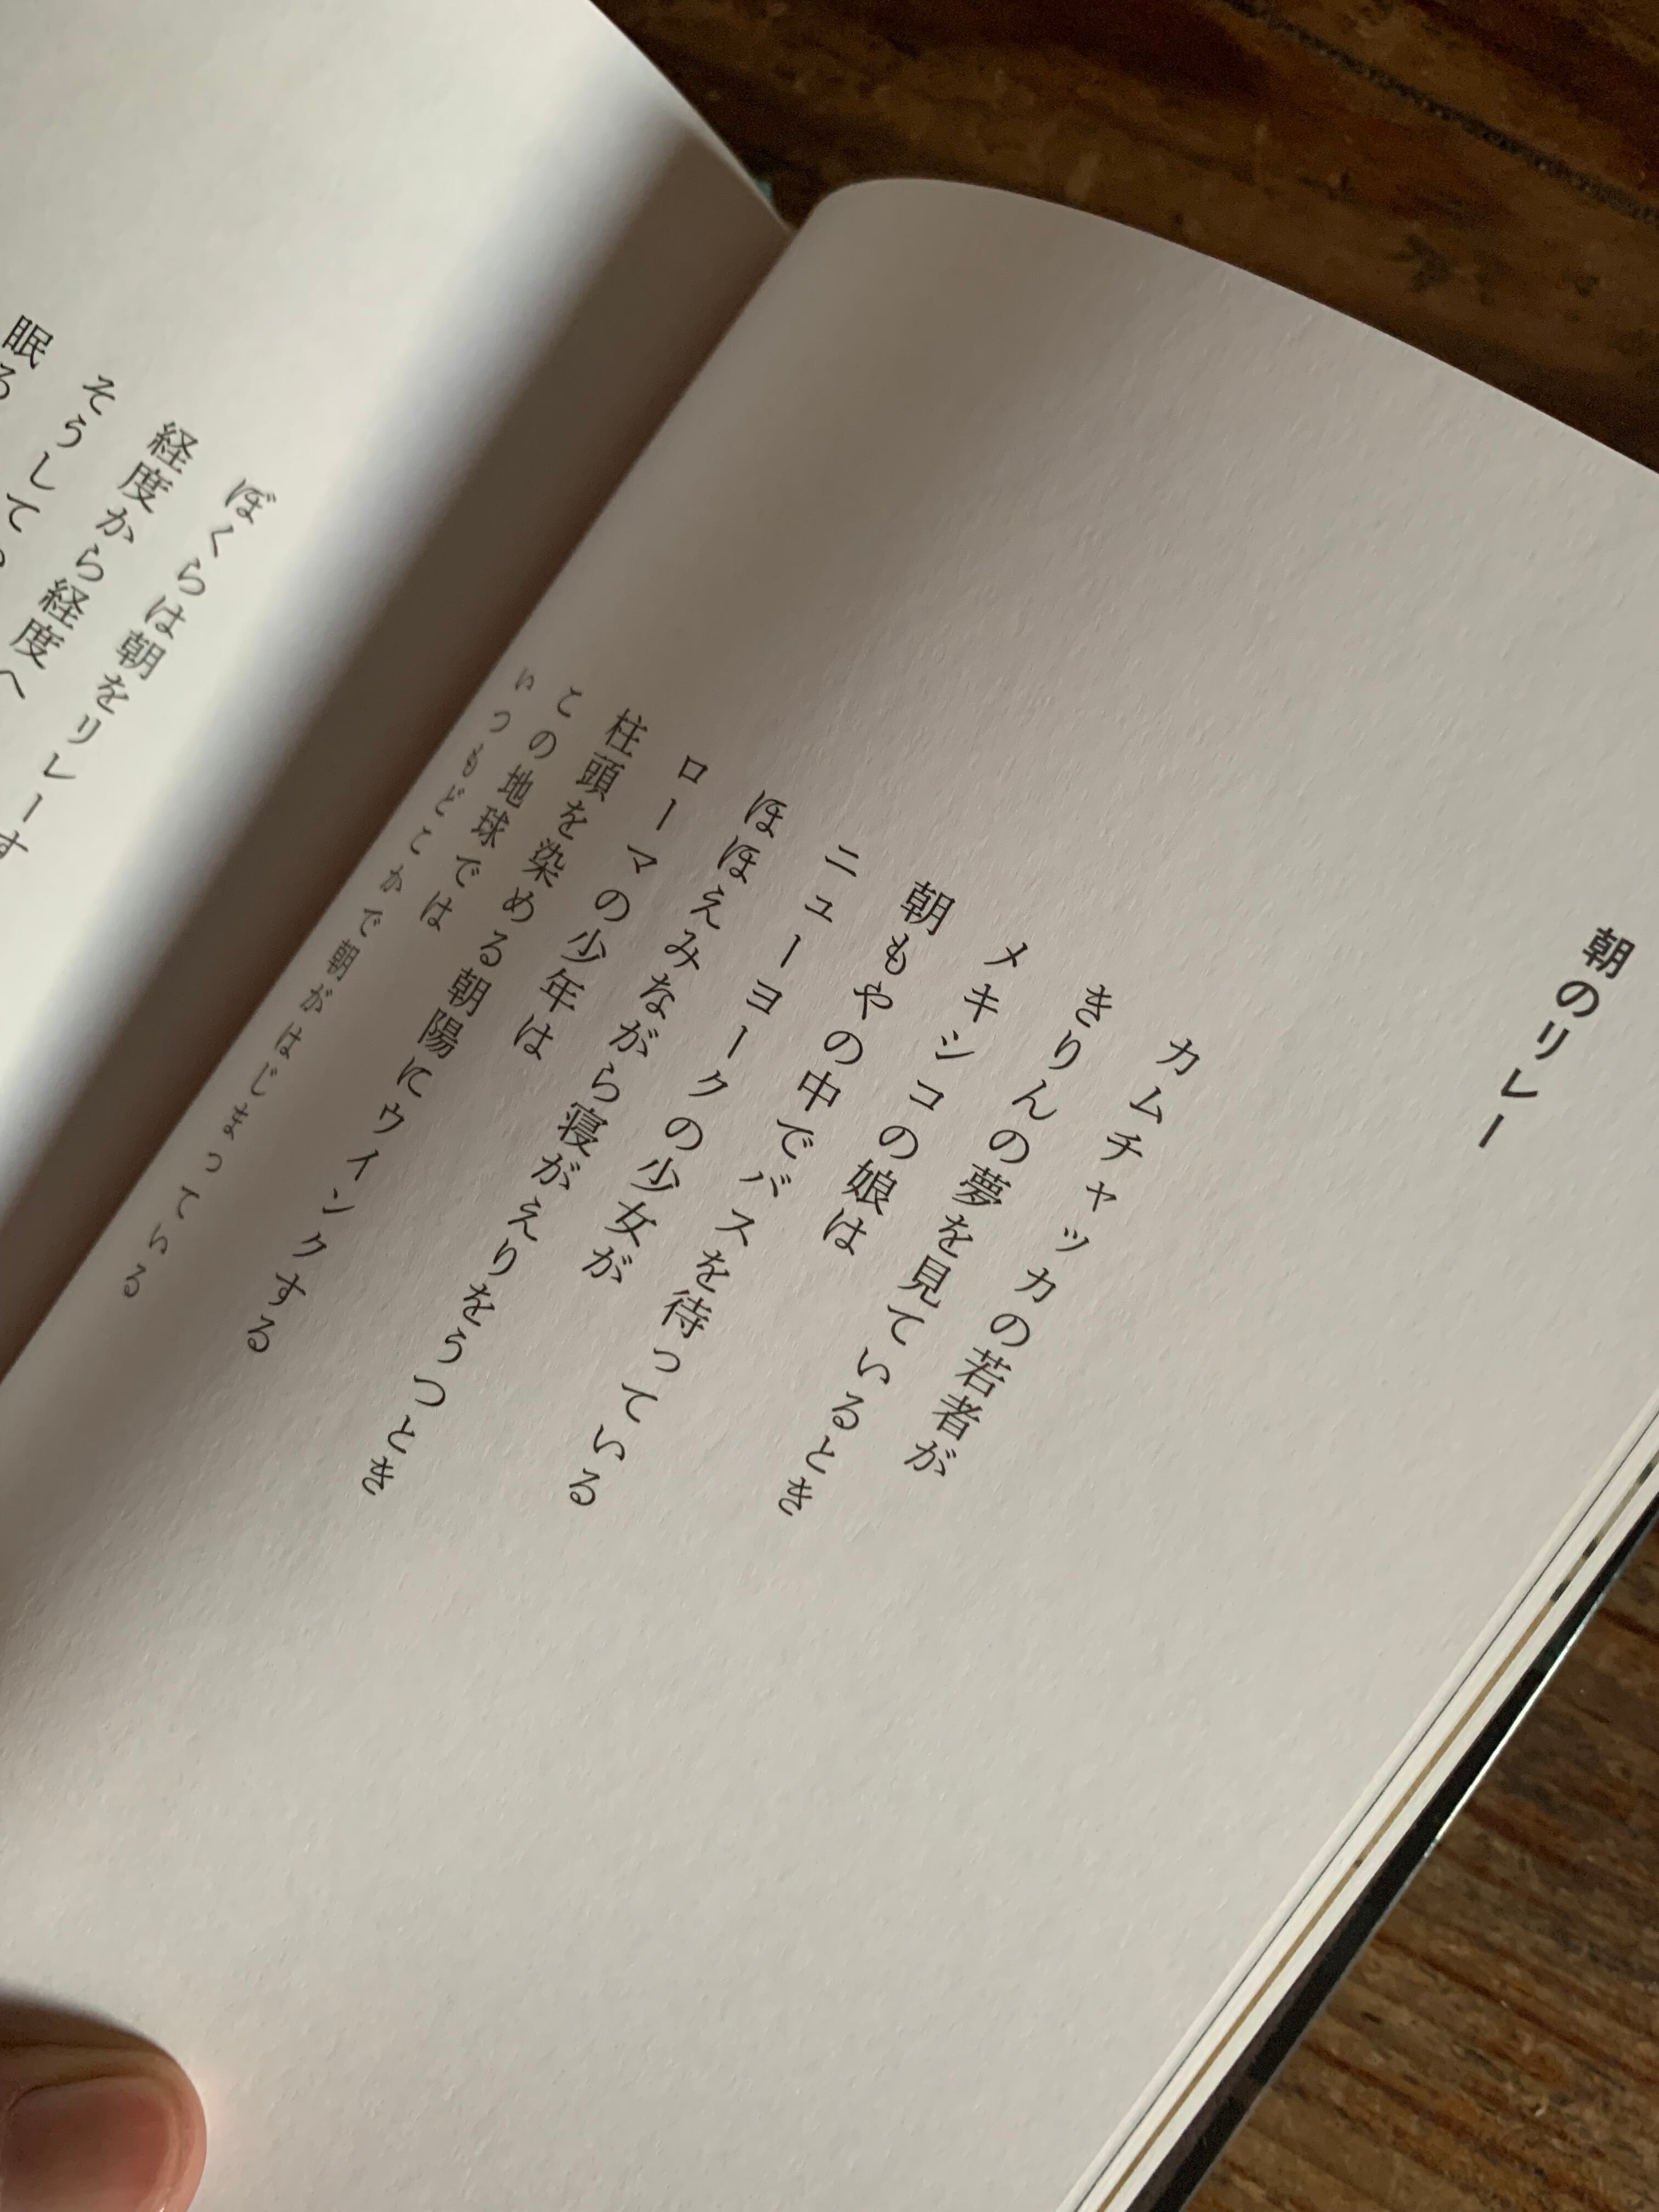 朝のリレー
カムチャッカの若者が
きりんの夢を見ているとき
メキシコの娘は
朝もやの中でバスを待っている
ニューヨークの少女が
ほほえみながら寝がえりをうつとき
ローマの少年は
柱頭を染める朝陽にウインクする
この地球では
いつもどこかで朝がはじまっている
ぼくらは朝をリレーす
経度から経度へ
そうして
眠る